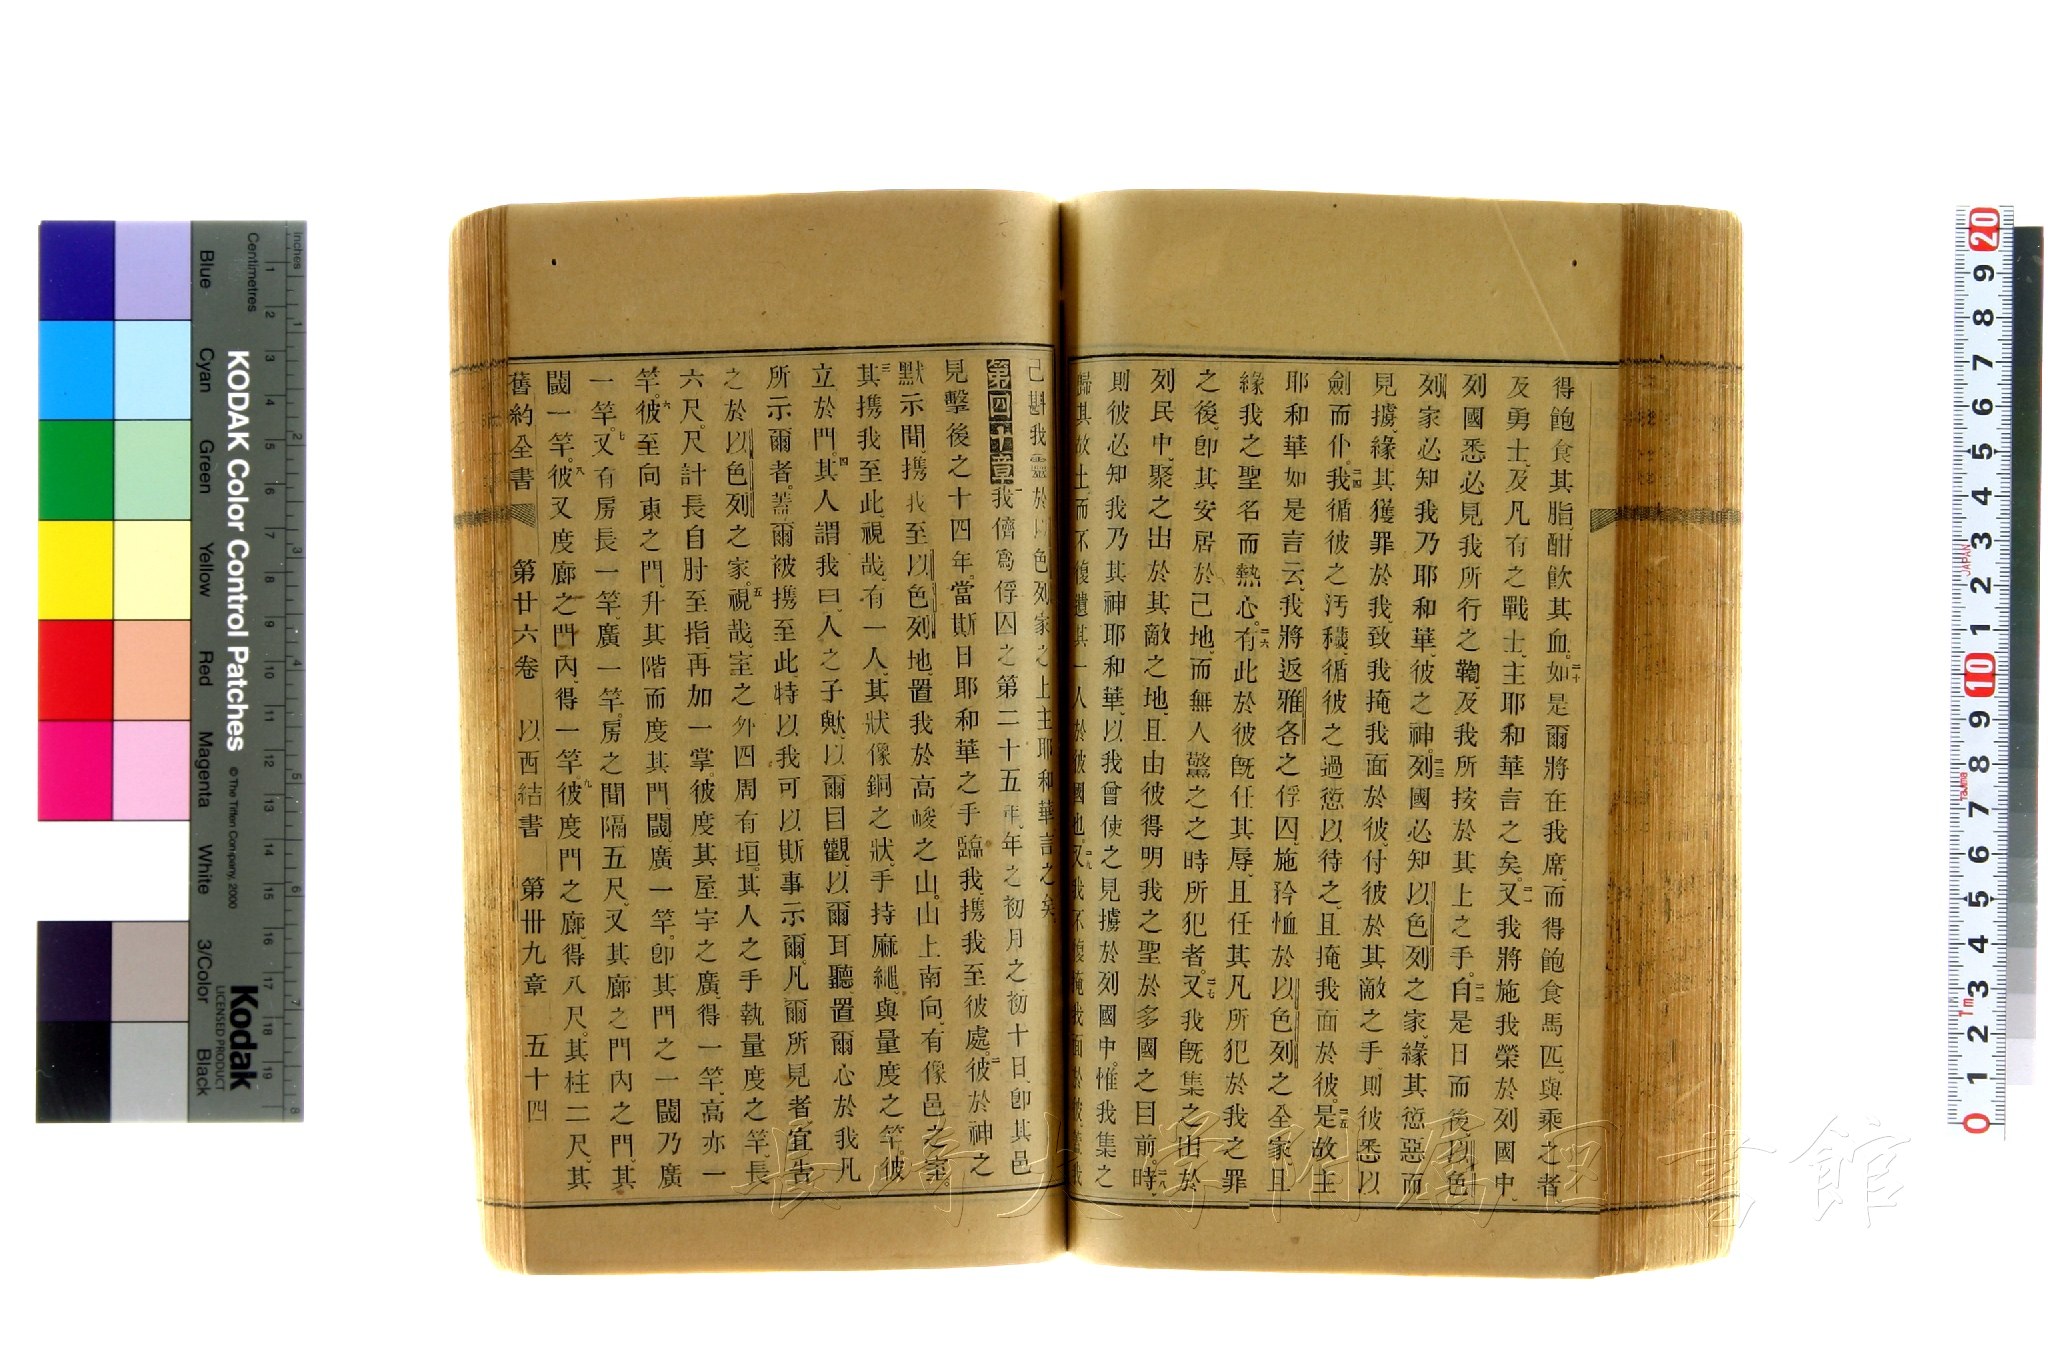 得飽食其脂、酣飲其血。二十如是爾將在我席、而得飽食馬匹、與乘之者、
及勇士、及凡有之戰士、主耶和華言之矣。二一又我將施我榮於列國中、
列國悉必見我所行之鞫、及我所按於其上之手。二二自是日而後、以色
列家必知我乃耶和華、彼之神。二三列國必知以色列之家、緣其愆惡而
見擄、緣其獲罪於我、致我掩我面於彼、付彼於其敵之手、則彼悉以
劍而仆。二四我循彼之汚穢、循彼之過愆以待之、且掩我面於彼。二五是故主
耶和華如是言云、我將返雅各之俘囚、施矜恤於以色列之全家、且
緣我之聖名而熱心。二六有此於彼旣任其辱、且任其凡所犯於我之罪
之後、卽其安居於己地、而無人驚之之時所犯者。二七又我旣集之出於
列民中、聚之出於其敵之地、且由彼得明我之聖於多國之目前。二八時、
則彼必知我乃其神耶和華、以我曾使之見擄於列國中。惟我集之
歸其故土、而不復遺其一人於彼國地。二九又我不復掩我面於彼、蓋我
己斟我靈於以色列家之上、主耶和華言之矣。
第四十章 一我儕爲俘囚之第二十五年、年之初月之初十日、卽其邑
見擊後之十四年。當斯日耶和華之手臨我、攜我至彼處。二彼於神之
默示間、攜我至以色列地、置我於高峻之山。山上南向、有像邑之室。
三其攜我至此、視哉、有一人、其狀像銅之狀、手持麻繩。與量度之竿。彼
立於門。四其人謂我曰、人之子歟、以爾目觀、以爾耳聽、置爾心於我凡
所示爾者。蓋爾被攜至此、特以我可以斯事示爾。凡爾所見者、宜告
之於以色列之家。五視哉、室之外四周有垣。其人之手執量度之竿、長
六尺。尺計長自肘至指、再加一掌。彼度其屋宇之廣、得一竿、高亦一
竿。六彼至向東之門、升其階而度其門閾、廣一竿。卽其門之一閾乃廣
一竿。七又有房長一竿。廣一竿。房之間隔五尺。又其廊之門內之門、其
閾一竿。八彼又度廊之門內、得一竿。九彼度門之廊得八尺。其柱二尺。其
舊約全書 第廿六卷 以西結書 第卅九章 五十四
KODAK Color Control Patches
© The Tiffen Company, 2000
Kodak
LICENSED PRODUCT
Inches
Centimetres
Blue
Cyan
Green
Yellow
Red
Magenta
White
3/Color
Black
長崎大学附属図書館